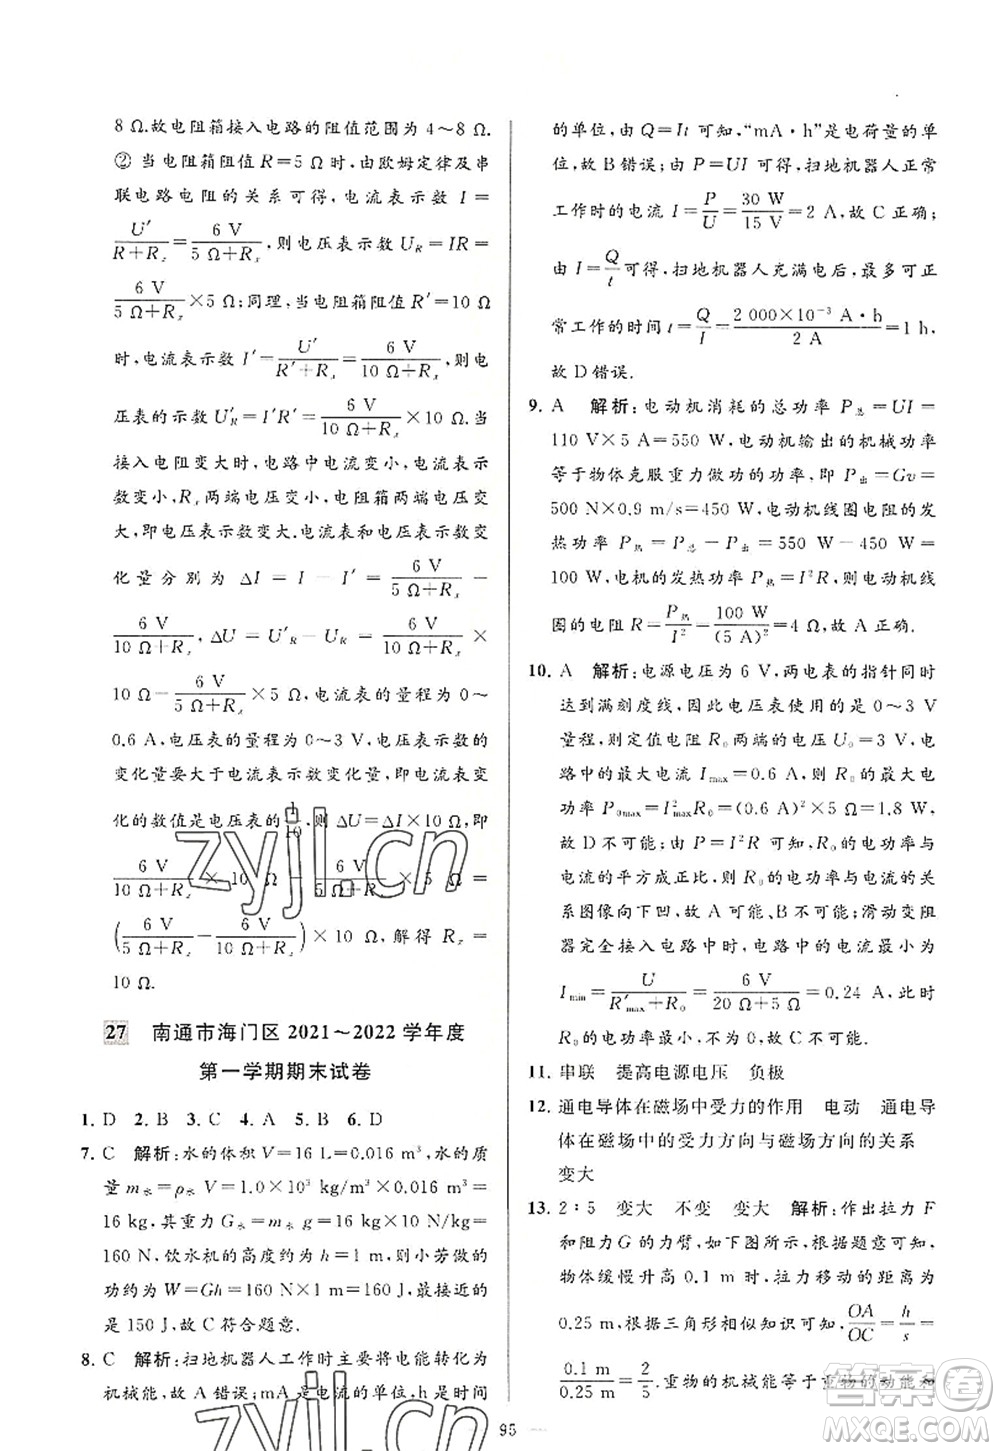 8 Ω.故电阻箱接入电路的阻值范围为 4～8 Ω.
② 当电阻箱阻值 R=5 Ω 时,由欧姆定律及串
联电路电阻的关系可得,电流表示数 I =
U′/(R+Rₓ) = 6 V/(5 Ω+Rₓ),则电压表示数 U_R=IR=
6 V/(5 Ω+Rₓ)×5 Ω;同理,当电阻箱阻值 R′=10 Ω
时,电流表示数 I′=U′/(R′+Rₓ)=6 V/(10 Ω+Rₓ),则电
压表的示数 U′_R=I′R′=6 V/(10 Ω+Rₓ)×10 Ω.当
接入电阻变大时,电路中电流变小,电流表示
数变小,Rₓ两端电压变小,电阻箱两端电压变
大,即电压表示数变大.电流表和电压表示数变
化量分别为 ΔI = I − I′ = 6 V/(5 Ω+Rₓ) −
6 V/(10 Ω+Rₓ),ΔU=U′_R−U_R=6 V/(10 Ω+Rₓ) ×
10 Ω−6 V/(5 Ω+Rₓ)×5 Ω;电流表的量程为 0～
0.6 A,电压表的量程为 0～3 V,电压表示数的
变化量要大于电流表示数变化量,即电流表变
化的数值是电压表的 1/10,则 ΔU=ΔI×10 Ω,即
6 V/(10 Ω+Rₓ) × 10 Ω − 6 V/(5 Ω+Rₓ) × 5 Ω =
(6 V/(5 Ω+Rₓ)−6 V/(10 Ω+Rₓ))×10 Ω,解得 Rₓ=
10 Ω.
27 南通市海门区 2021～2022 学年度
第一学期期末试卷
1. D 2. B 3. C 4. A 5. B 6. D
7. C 解析:水的体积 V=16 L=0.016 m³,水的质
量 m水=ρ水 V=1.0×10³ kg/m³×0.016 m³=
16 kg,其重力 G水=m水 g=16 kg×10 N/kg=
160 N,饮水机的高度约为 h=1 m,则小芳做的
功约为 W=Gh=160 N×1 m=160 J,最接近的
是 150 J,故 C 符合题意.
8. C 解析:扫地机器人工作时主要将电能转化为
机械能,故 A 错误;mA 是电流的单位,h 是时间
的单位,由 Q=It 可知,“mA·h”是电荷量的单
位,故 B 错误;由 P=UI 可得,扫地机器人正常
工作时的电流 I=P/U=30 W/15 V=2 A,故 C 正确;
由 I=Q/t 可得,扫地机器人充满电后,最多可正
常工作的时间 t=Q/I=2 000×10⁻³ A·h/2 A=1 h,
故 D 错误.
9. A 解析:电动机消耗的总功率 P总=UI=
110 V×5 A=550 W,电动机输出的机械功率
等于物体克服重力做功的功率,即 P出=Gv=
500 N×0.9 m/s=450 W,电动机线圈电阻的发
热功率 P热=P总−P出=550 W−450 W=
100 W,电机的发热功率 P热=I²R,则电动机线
圈的电阻 R=P热/I²=100 W/(5 A)²=4 Ω,故 A 正确.
10. A 解析:电源电压为 6 V,两电表的指针同时
达到满刻度线,因此电压表的选择的是 0～3 V
量程,则定值电阻 R₀两端的电压 U₀=3 V,电
路中的最大电流 I_max=0.6 A,则 R₀的最大电
功率 P_0max=I²_maxR₀=(0.6 A)²×5 Ω=1.8 W,
故 D 不可能;由 P=I²R 可知,R₀的电功率与
电流的平方成正比,则 R₀的电功率与电流的关
系图像向下凹,故 A 可能、B 不可能;滑动变阻
器完全接入电路中时,电路中的电流最小为
I_min=U/(R′_max+R₀)=6 V/(20 Ω+5 Ω)=0.24 A,故
C 不可能.
11. 串联 提高电源电压 负极
12. 通电导体在磁场中受力的作用 电动 通电导
体在磁场中的受力方向与磁场方向的关系
变大
13. 2∶5 变大 不变 变大 解析:作出拉力 F
和阻力 G 的力臂,如下图所示,根据题意可知,
物体缓慢升高 0.1 m 时,拉力移动的距离为
0.25 m,根据三角形相似知识可知,OA/OC=h/s=
0.1 m/0.25 m=2/5.重物的机械能等于重物的动能和
95
zyjl.cn
zyjl.cn
答案卷
MXQE.COM